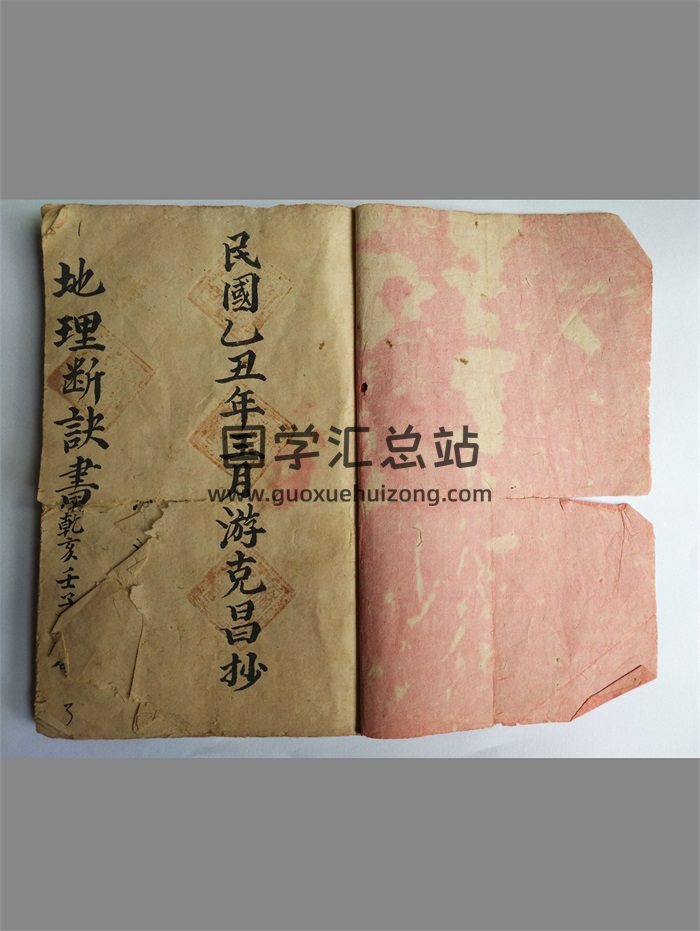 民國乙丑年三月游克昌抄
地理断訣書
乾亥壬子
国学汇总站
www.guoxuehuizong.com